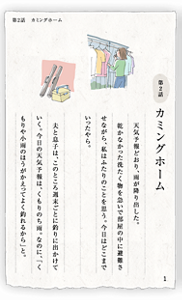 第2話　カミングホーム
第2話
カミングホーム
天気予報どおり、雨が降り出した。
乾かなかった洗たく物を急いで部屋の中に避難さ
せながら、私はふたりのことを思う。今日はどこまで
いったやら。
夫と息子は、このところ週末ごとに釣りに出かけて
いく。今日の天気予報は、くもりのち雨。なのに、「く
もりや小雨のほうがかえってよく釣れるから」と。
1